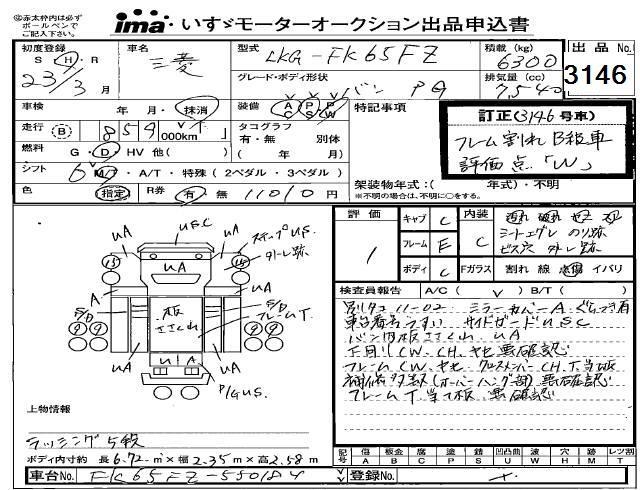 ◎赤太枠内は必ず
ボールペンで
ご記入下さい。
ima・いすゞモーターオークション出品申込書
初度登録
S・H・R
23/3 月
車名
三菱
型式
LKG-FK65FZ
グレード・ボディ形状
バン PG
積載 (kg)
6300
排気量 (cc)
7,540
出品 No.
3146
車検
年・月・抹消
装備
A C P S P W
走行 (B) 859,000km
タコグラフ
有・無 別体
( 年 月)
燃料
G・D・HV 他( )
シフト
6 M/T・A/T・特殊 (2ペダル・3ペダル)
色
指定
R券
有 無 11010 円
特記事項
訂正(3146号車)
フレーム割れ B級車
評価点「W」
架装物年式:( 年式)・不明
※不明の場合は、不明に○をする。
評価
1
キャブ C
フレーム E
ボディ C
内装
C
シートエグレ のり跡
ビス穴 外し跡
Fガラス
割れ 線 点傷 イバリ
検査員報告
A/C ( ) B/T ( )
ミラーカバーA
サイドガードUSC
バン内板ささくれ UA
下回りCW、CH、ヤセ 要確認
フレームCW、ヤセ クロスメンバーCH、T、当て板
補修多数(オーバーハング部)要確認
フレームT、当て板 要確認
USC
UA
UA
UA
ステップUS
外し跡
15
14
A
A
S/B
S/B
フレームT
板
ささくれ
9 9
9 9
UA
UA
UA
P/G US
上物情報
ラッシング5段
ボディ内寸約 長6.72m×幅2.35m×高2.58m
車台No.
FK65FZ-550184
記号
傷 A
板金 B
腐 C
塗 P
錆 S
凹凸曲 U
波 W
穴 H
跡 M
レツ割 T
登録No.